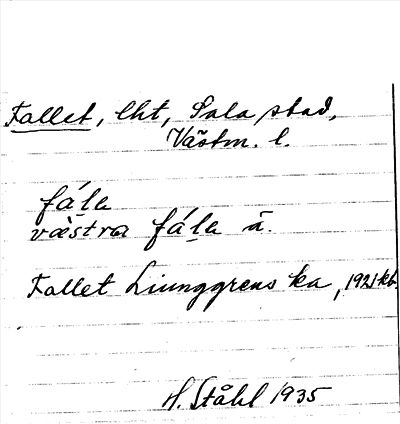 Fallet, lht, Sala stad,
Västm. l.
fála
västra fála ä.
Fallet Liunggrens ka, 1921 kb.
H. Ståhl 1935